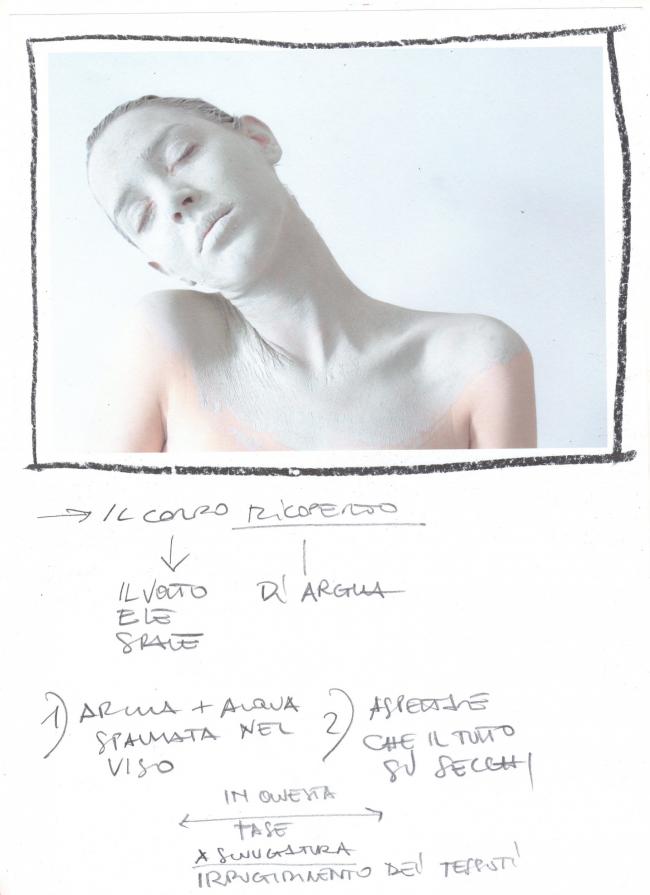 → IL CORPO RICOPERTO
IL VOLTO
E LE
SPALLE
DI ARGILLA
1) ARGILLA + ACQUA
SPALMATA NEL
VISO
2) ASPETTARE
CHE IL TUTTO
SI SECCHI
IN QUESTA
FASE
ASCIUGATURA
IRRIGIDIMENTO DEI TESSUTI